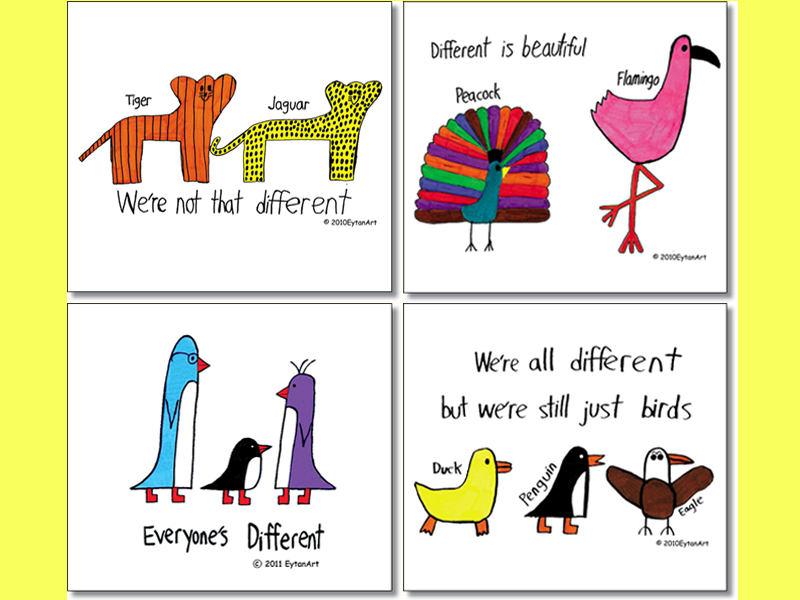 Tiger
Jaguar
We're not that different
© 2010EytanArt
Different is beautiful
Flamingo
Peacock
© 2010EytanArt
Everyone's Different
© 2011 EytanArt
We're all different
but we're still just birds
Duck
Penguin
Eagle
© 2010EytanArt